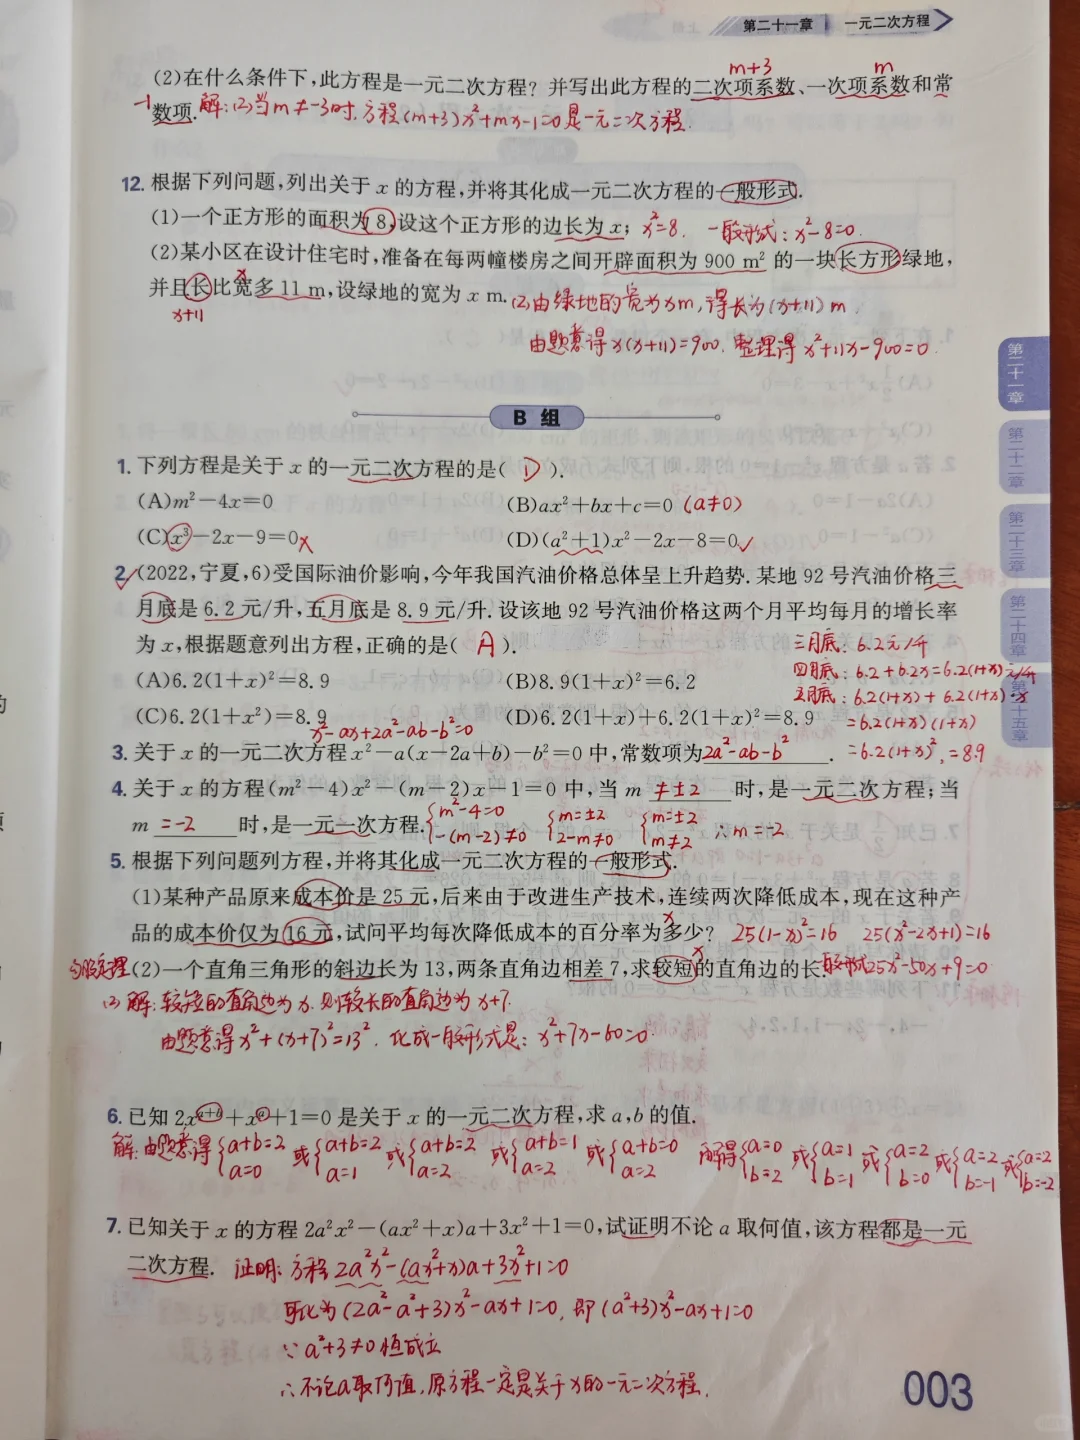 第二十一章 一元二次方程
m+3 m
(2)在什么条件下,此方程是一元二次方程?并写出此方程的二次项系数、一次项系数和常
数项.
-1 解:(2)当m≠-3时,方程(m+3)x²+mx-1=0是一元二次方程.
12. 根据下列问题,列出关于 x 的方程,并将其化成一元二次方程的一般形式.
(1)一个正方形的面积为 8,设这个正方形的边长为 x; x²=8. 一般形式:x²-8=0.
(2)某小区在设计住宅时,准备在每两幢楼房之间开辟面积为 900 m² 的一块长方形绿地,
x
并且长比宽多 11 m,设绿地的宽为 x m. (2)由绿地的宽为xm,得长为(x+11)m.
x+11
由题意得x(x+11)=900. 整理得x²+11x-900=0.
第二十一章
第二十二章
第二十三章
第二十四章
第二十五章
B 组
1. 下列方程是关于 x 的一元二次方程的是( D ).
(A)m²-4x=0 (B)ax²+bx+c=0 (a≠0)
(C)x³-2x-9=0 x (D)(a²+1)x²-2x-8=0 ✓
2. (2022,宁夏,6)受国际油价影响,今年我国汽油价格总体呈上升趋势.某地 92 号汽油价格三
月底是 6.2 元/升,五月底是 8.9 元/升.设该地 92 号汽油价格这两个月平均每月的增长率
为 x,根据题意列出方程,正确的是( A ).
三月底:6.2元/升
四月底:6.2+6.2x=6.2(1+x)元/升
五月底:6.2(1+x)+6.2(1+x)·x
=6.2(1+x)(1+x)
=6.2(1+x)².=8.9
(A)6.2(1+x)²=8.9 (B)8.9(1+x)²=6.2
(C)6.2(1+x²)=8.9 (D)6.2(1+x)+6.2(1+x)²=8.9
x²-ax+2a²-ab-b²=0
3. 关于 x 的一元二次方程 x²-a(x-2a+b)-b²=0 中,常数项为 2a²-ab-b² .
4. 关于 x 的方程(m²-4)x²-(m-2)x-1=0 中,当 m ≠±2 时,是一元二次方程;当
m =-2 时,是一元一次方程. {m²-4=0 -(m-2)≠0 {m=±2 2-m≠0 {m=±2 m≠2 ∴m=-2
5. 根据下列问题列方程,并将其化成一元二次方程的一般形式.
(1)某种产品原来成本价是 25 元,后来由于改进生产技术,连续两次降低成本,现在这种产
x
品的成本价仅为 16 元,试问平均每次降低成本的百分率为多少? 25(1-x)²=16 25(x²-2x+1)=16
x
勾股定理 (2)一个直角三角形的斜边长为 13,两条直角边相差 7,求较短的直角边的长. 一般形式25x²-50x+9=0
(2)解:较短的直角边为x.则较长的直角边为x+7.
由题意得x²+(x+7)²=13². 化成一般形式是:x²+7x-60=0.
6. 已知 2xᵃ⁺ᵇ+xᵃ+1=0 是关于 x 的一元二次方程,求 a,b 的值.
解:由题意得{a+b=2 a=0 或{a+b=2 a=1 或{a+b=2 a=2 或{a+b=1 a=2 或{a+b=0 a=2 解得{a=0 b=2 或{a=1 b=1 或{a=2 b=0 或{a=2 b=-1 或{a=2 b=-2
7. 已知关于 x 的方程 2a²x²-(ax²+x)a+3x²+1=0,试证明不论 a 取何值,该方程都是一元
二次方程. 证明:方程2a²x²-(ax²+x)a+3x²+1=0
可化为(2a²-a²+3)x²-ax+1=0,即(a²+3)x²-ax+1=0
∵a²+3≠0恒成立
∴不论a取何值,原方程一定是关于x的一元二次方程.
003